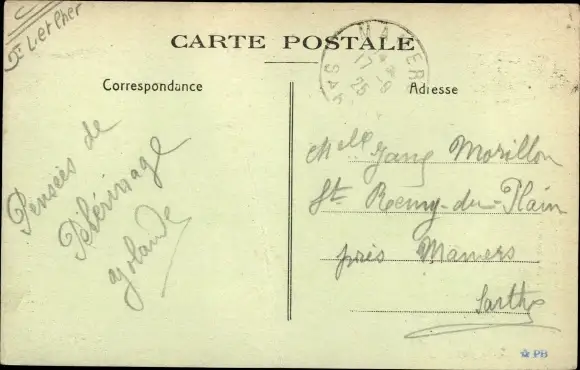 Loir et Cher
CARTE POSTALE
MAMERS
17-9
25
SARTHE
Correspondance
Adresse
Pensées de
Pélérinage
Yolande
Melle Morillon
St Remy-du-Plain
près Mamers
Sarthe
PB